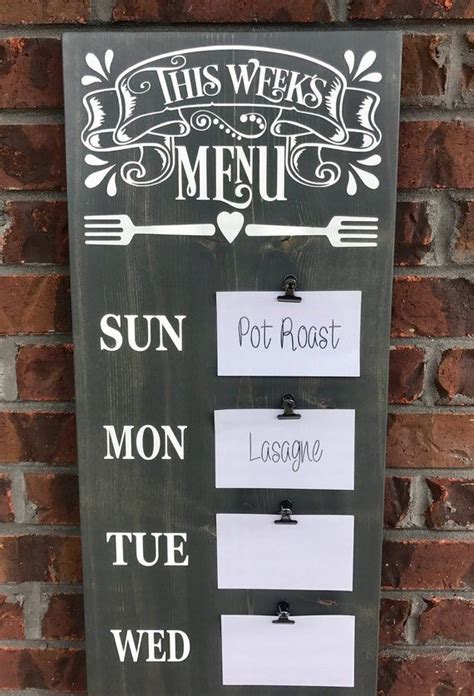 THIS WEEK'S
MENU
SUN Pot Roast
MON Lasagne
TUE
WED